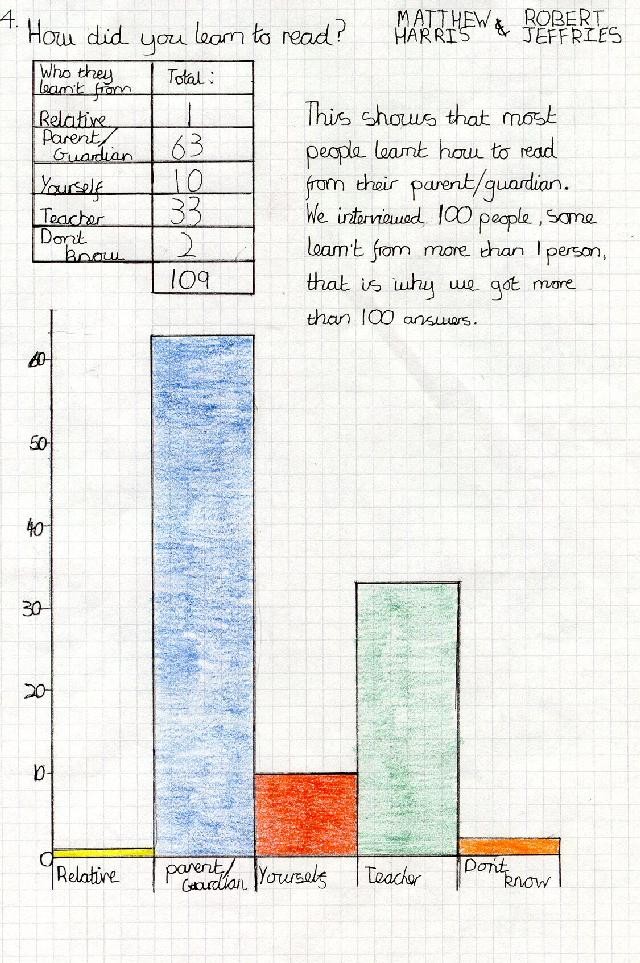 4. How did you learn to read?
MATTHEW & ROBERT
HARRIS JEFFRIES
Who they Total:
learn't from
Relative 1
Parent/
Guardian 63
Yourself 10
Teacher 33
Dont
know 2
109
This shows that most
people learnt how to read
from their parent/guardian.
We interviewed 100 people, some
learn't from more than 1 person,
that is why we got more
than 100 answers.
60
50
40
30
20
10
0
Relative parent/ Yourself Teacher Don't
Guardian know